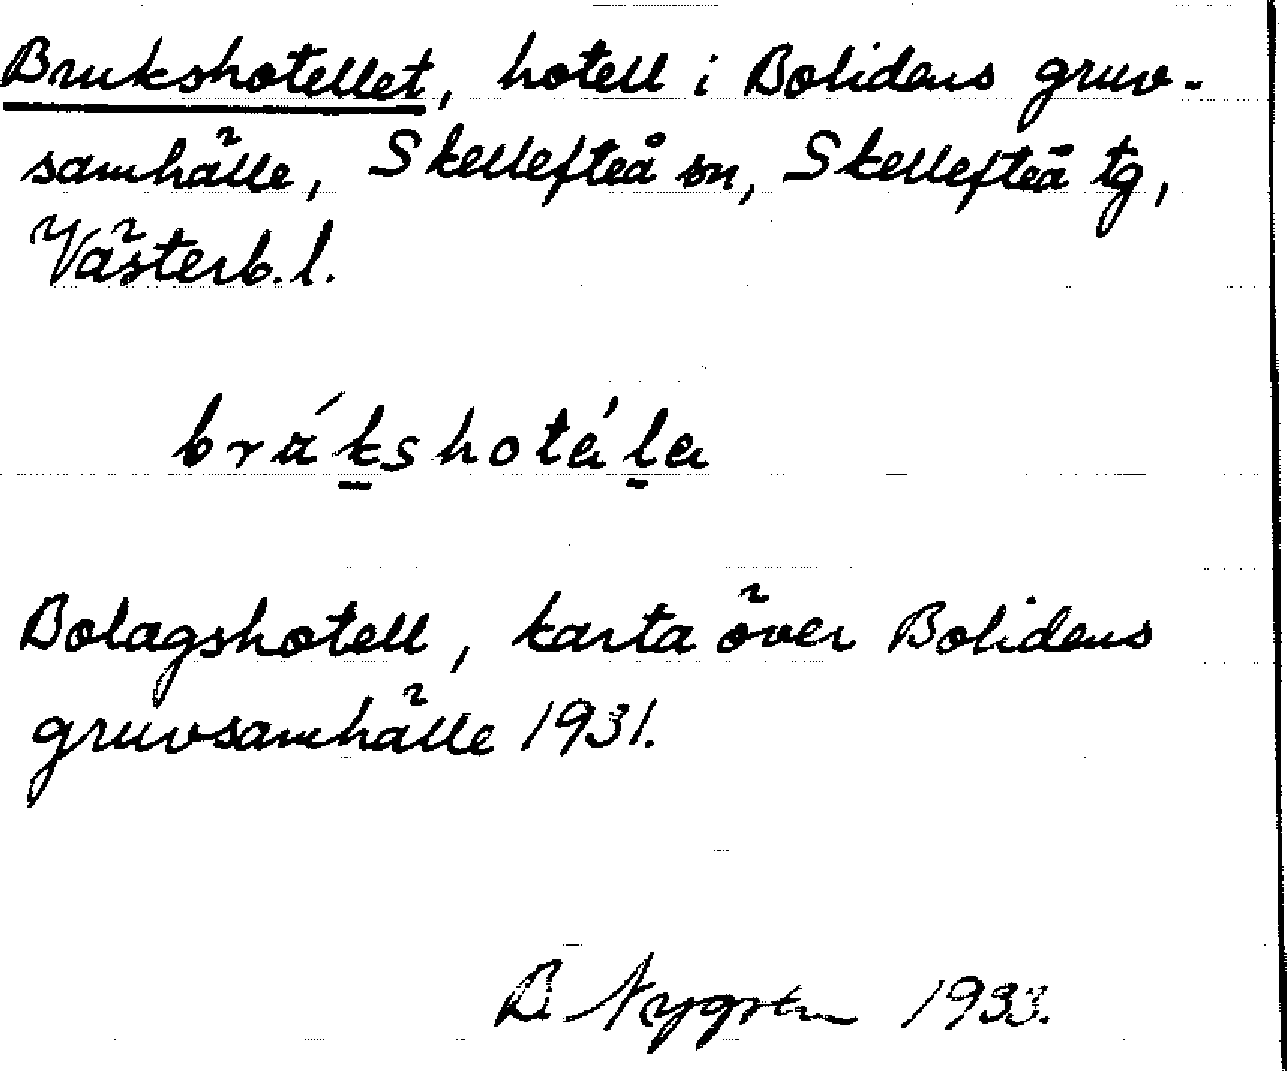 Brukshotellet, hotell i Bolidens gruv-
samhälle, Skellefteå sn, Skellefteå tg,
Västerb. l.
Bolagshotell, karta över Bolidens
gruvsamhälle 1931.
B. Nygren 1933.